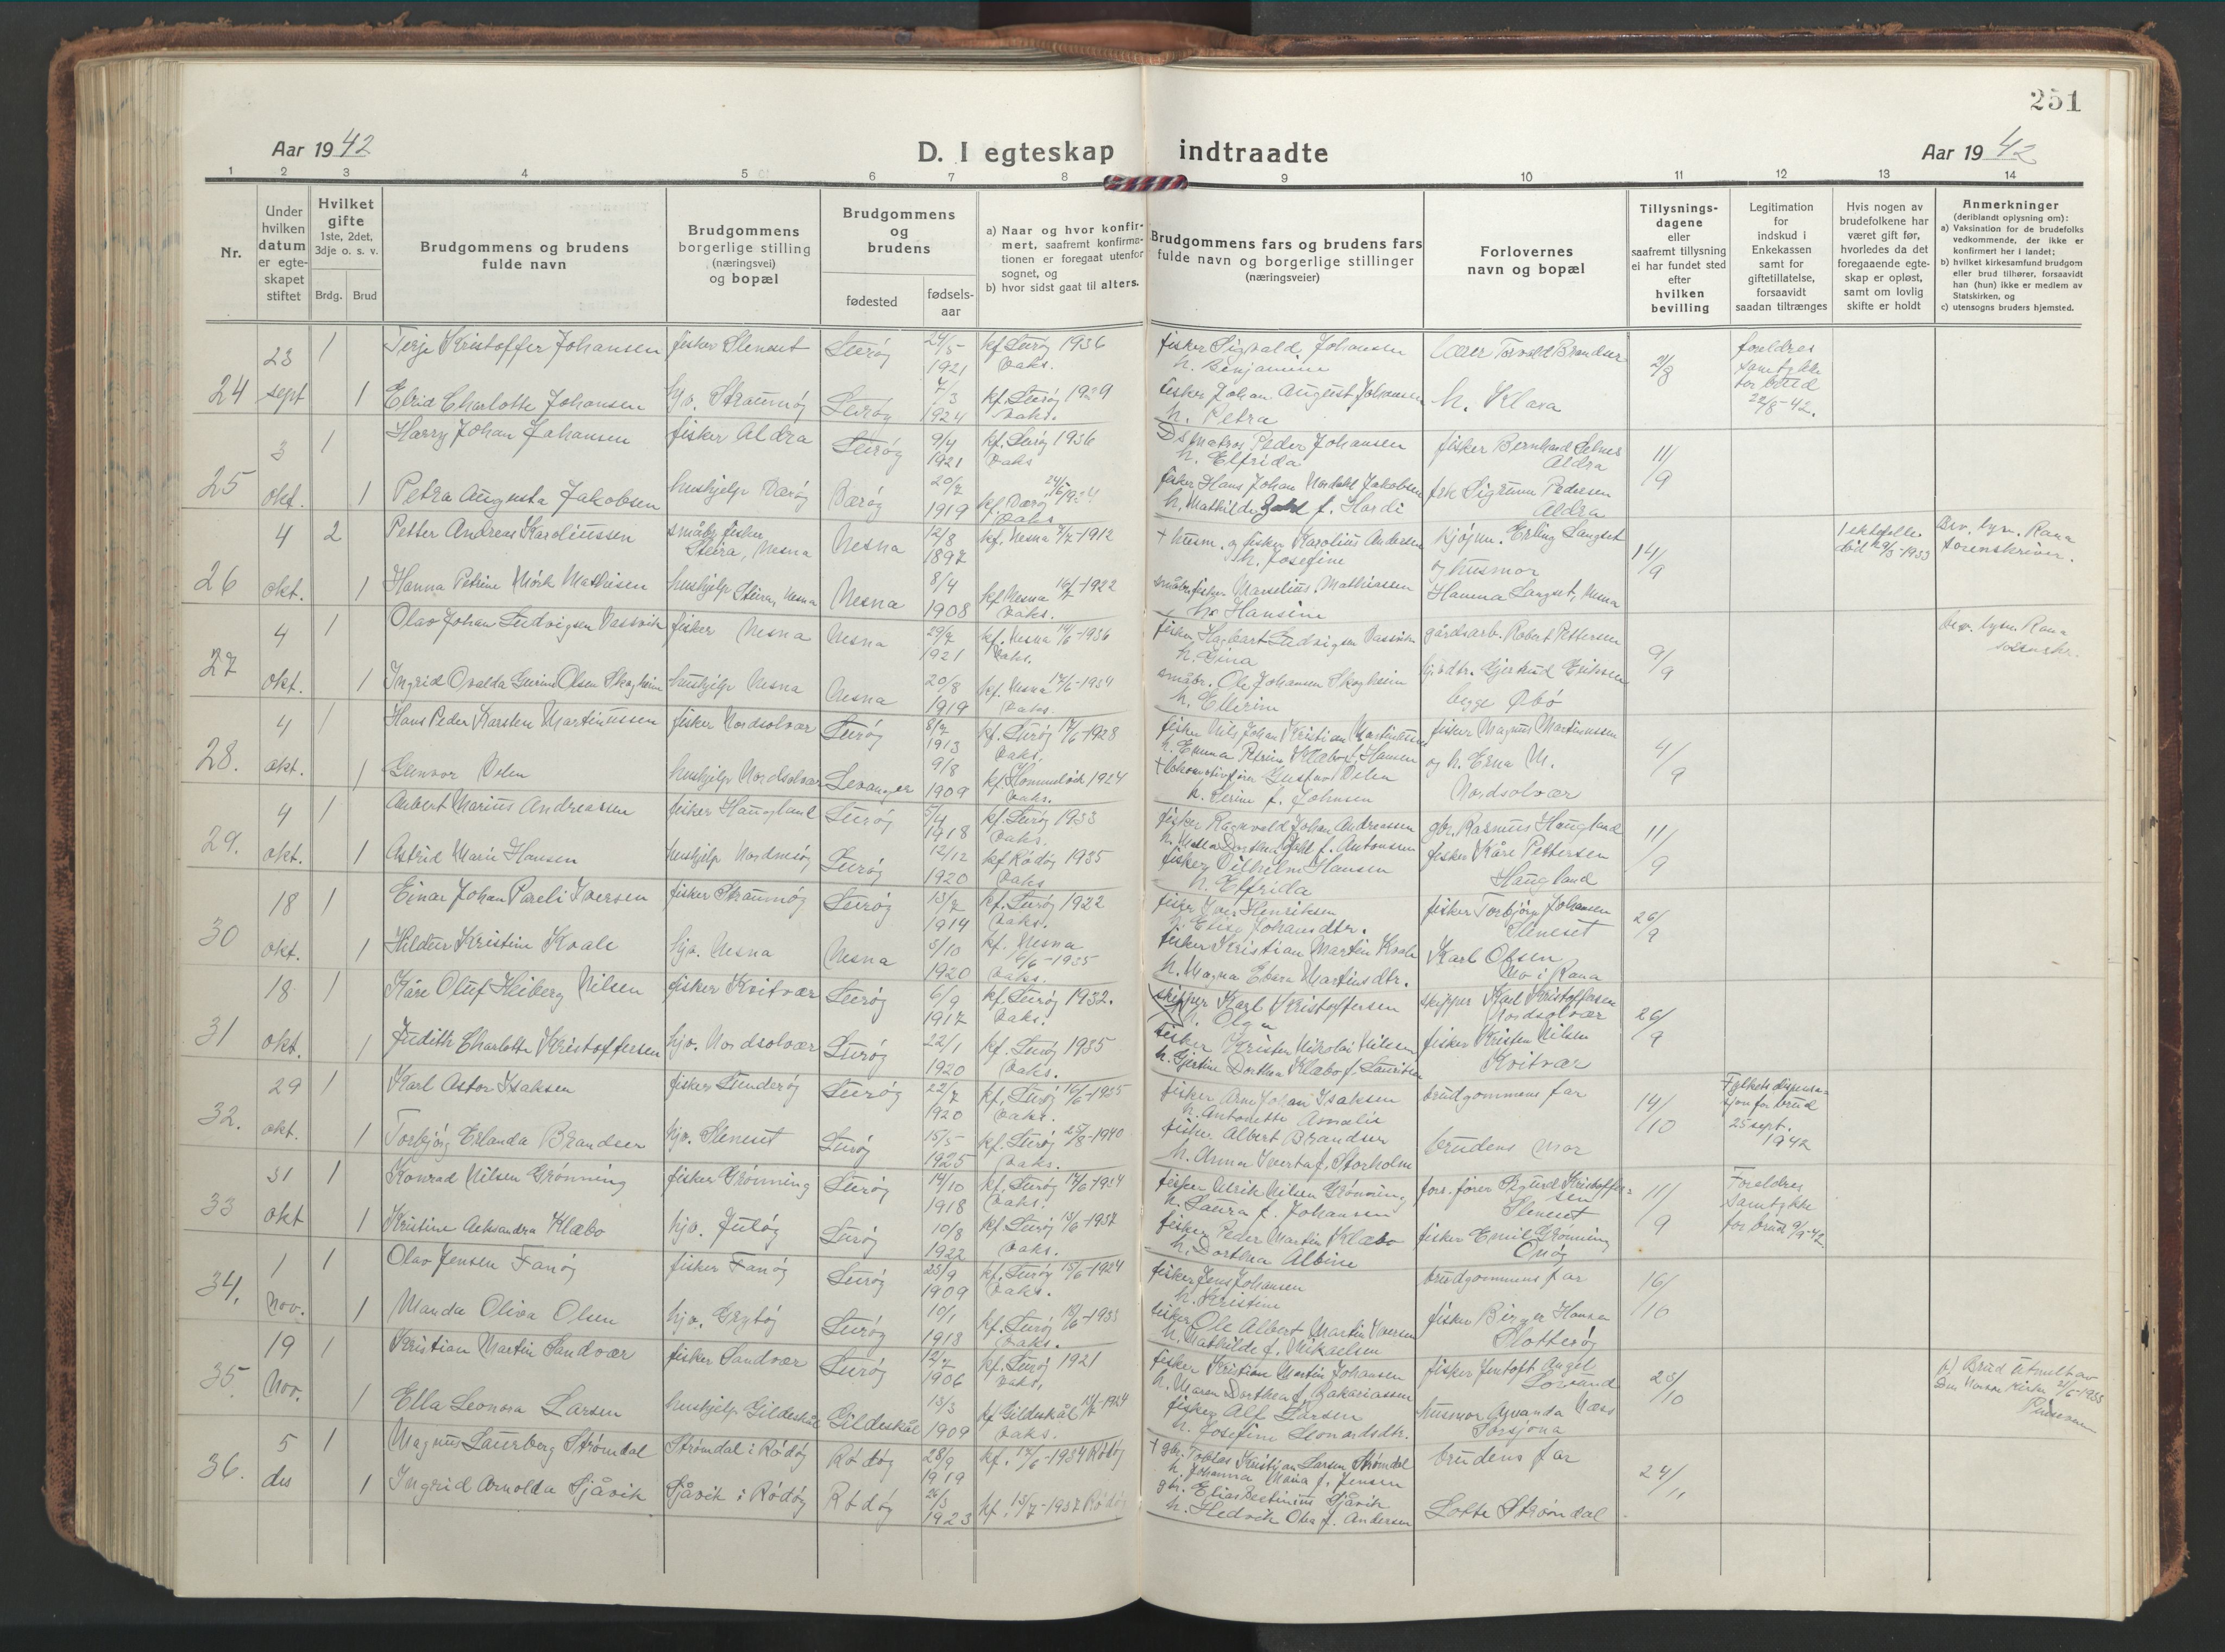 251
Aar 1942
D. I egteskap indtraadte
Aar 1942
1 2 3 4 5 6 7 8 9 10 11 12 13 14
Nr.
Under hvilken datum er egteskapet stiftet
Hvilket gifte 1ste, 2det, 3dje o. s. v.
Brdg. Brud
Brudgommens og brudens fulde navn
Brudgommens borgerlige stilling (næringsvei) og bopæl
Brudgommens og brudens
fødested
fødsels-aar
a) Naar og hvor konfirmert, saafremt konfirmationen er foregaat utenfor sognet, og
b) hvor sidst gaat til alters.
Brudgommens fars og brudens fars fulde navn og borgerlige stillinger (næringsveier)
Forlovernes navn og bopæl
Tillysningsdagene eller saafremt tillysning ei har fundet sted efter hvilken bevilling
Legitimation for indskud i Enkekassen samt for giftetillatelse, forsaavidt saadan tiltrænges
Hvis nogen av brudefolkene har været gift før, hvorledes da det foregaaende egteskap er opløst, samt om lovlig skifte er holdt
Anmerkninger (deriblandt oplysning om):
a) Vaksination for de brudefolks vedkommende, der ikke er konfirmert her i landet;
b) hvilket kirkesamfund brudgom eller brud tilhører, forsaavidt han (hun) ikke er medlem av Statskirken, og
c) utensogns bruders hjemsted.
24 23 sept 1 Terje Kristoffer Johansen fisker Sleneset Lurøy 24/5 1921 kf. Lurøy 1936 vaks. fisker Sigvald Johansen h. Benjamine lærer Torvald Brandser 2/8 foreldres samtykke for brud 22/8-42.
1 Elrid Charlotte Johansen hjv. Straumøy Lurøy 7/3 1924 kf. Lurøy 1939 vaks. fisker Johan August Johansen h. Petra h. Klara
25 3 okt. 1 Harry Johan Johansen fisker Aldra Lurøy 9/4 1921 kf. Lurøy 1936 vaks Peder Johansen h. Elfrida fisker Bernhard Selnes Aldra 11/9
1 Petra Augusta Jakobsen hushjelp Værøy Værøy 20/7 1919 kf. Værøy vaks fisker Hans Johan Nordahl Jakobsen h. Mathilde f. Hardi frk Sigrunn Pedersen Aldra
26 4 okt. 2 Petter Andreas Karoliussen småbr. fisker Steira, Nesna Nesna 12/8 1897 kf. Nesna 7/7-1912 † husm. og fisker Karolius Andersen h. Josefine Erling Langset og husmor 14/9 1 ektefelle død 1933 Bev. lysn. Rana sorenskriver.
1 Hanna Petrine Mörk Mathisen hushjelp Steira, Nesna Nesna 8/4 1908 kf Nesna 16/7-1922 vaks. småbr. fisker Marselius Mathiassen h. Hansine Hanna Langset, Nesna
27 4 okt. 1 Olav Johan Ludvigsen Vassvik fisker Nesna Nesna 29/7 1921 kf. Nesna 14/6-1936 vaks. fisker Hagbart Ludvigsen Vassvik h. Gina gårdsarb. Robert Pettersen 9/9 Bev. lysn. Rana sorenskr.
1 Ingrid Ovalda Gurine Olsen Skogheim hushjelp Nesna Nesna 20/8 1919 kf. Nesna 17/6-1934 vaks. småbr. Ole Johansen Skogheim h. Ellirine Gjertrud Eriksen begge Øbø
28. 4 okt. 1 Hans Peder Karsten Martinussen fisker Nordsolvær Lurøy 8/7 1913 kf. Lurøy 17/6-1928 vaks. fisker Nils Johan Kristian Martinussen h. Emma Petrine Klæbo f. Hansen fisker Magnus Martinussen 4/9
1 Gunvor Velen hushjelp Nordsolvær Levanger 9/8 1909 kf. Hommelvik 1924 vaks. † lokomotivfører Gustav Velen h. Serine f. Johnsen og h. Erna M. Nordsolvær
29. 4 okt. 1 Aubert Marius Andreassen fisker Haugland Lurøy 5/4 1918 kf. Lurøy 1933 vaks. fisker Ragnvald Johan Andreassen f. Antonsen gbr. Rasmus Haugland 11/9
1 Astrid Marie Hansen hushjelp Nordnesøy Lurøy 12/12 1920 kf Rödøy 1935 vaks fisker Vilhelm Hansen h. Elfrida fisker Kåre Pettersen Haugland
30 18 okt. 1 Einar Johan Pareli Iversen fisker Straumøy Lurøy 13/7 1914 kf. Lurøy 1922 vaks. fisker Iver Henriksen h. Elise Johansdtr. fisker Torbjörn Johansen Sleneset 26/9
1 Hildur Kristine Kvale hjv. Nesna Nesna 5/10 1920 kf. Nesna 6/6-1935 vaks. fisker Kristian Martin Kvale h. Magna Ebera Martinsdtr. Karl Olsen Mo i Rana
31 18 okt. 1 Kåre Oluf Heiberg Nilsen fisker Kvitvær Lurøy 6/9 1917 kf. Lurøy 1932. vaks. skipper Karl Kristoffersen h. Olga skipper Karl Kristoffersen Nordsolvær 26/9
1 Judith Charlotte Kristoffersen hjv. Nordsolvær Lurøy 22/1 1920 kf. Lurøy 1935 vaks. fisker Kristen Nikolai Nilsen h. Gjertine Dorthea Klæbo f. Lauritsen fisker Kristen Nilsen Kvitvær
32. 29 okt. 1 Karl Astor Isaksen fisker Sunderøy Lurøy 22/7 1920 kf. Lurøy 16/6-1935 vaks. fisker Arne Johan Isaksen h. Antonette Amalie brudgommens far 14/10 Fylkets dispensasjon for brud 25 sept. 1942
1 Torbjörg Erlanda Brandser hjv. Sleneset Lurøy 15/5 1925 kf. Lurøy 25/8-1940 vaks. fisker Albert Brandser h. Anna Iverta f. Storholm brudens mor
33 31 okt 1 Konrad Nilsen Grønning fisker Grønning Lurøy 14/10 1918 kf. Lurøy 17/6-1934 vaks. fisker Ulrik Nilsen Grønning h. Laura f. Johansen fors. fører Sigurd Kristoffersen Sleneset 11/9 Foreldres samtykke for brud 9/9-42
1 Kristine Aleksandra Klæbo hjv. Juløy Lurøy 10/8 1922 kf. Lurøy 13/6-1937 vaks. fisker Peder Martin Klæbo h. Dorthea Albine fisker Emil Grønning Onøy
34. 1 nov. 1 Olav Jensen Fanøy fisker Fanøy Lurøy 23/9 1909 kf. Lurøy 15/6-1924 vaks. fisker Jens Johansen h. Kristine brudgommens far 16/10
1 Wanda Oliva Olsen hjv. Grytøy Lurøy 10/1 1918 kf. Lurøy 18/6-1933 vaks. fisker Ole Albert Martin Iversen h. Mathilde f. Mikaelsen fisker Birger Hansen Slotterøy
35. 19 Nov. 1 Kristian Martin Sandvær fisker Sandvær Lurøy 12/7 1906 kf. Lurøy 1921 vaks. fisker Kristian Martin Johansen h. Maren Dorthea f. Zakariassen fisker Jentoft Angel Lovsund 23/10 b) Brud utmeldt av Den Norske Kirke 21/6-1933
1 Ella Leonora Larsen hushjelp Gildeskål Gildeskål 13/3 1909 kf Gildeskål 13/7-1924 vaks. fisker Alf Larsen h. Josefine Leonardsdtr. husmor Agvanda Næss Sørsjona
36. 5 des 1 Magnus Laurberg Strømdal Strømdal i Rødøy Rødøy 28/9 1919 kf. 17/6-1934 Rödøy † gbr. Tobias Kristian Larsen Strømdal h. Johanna Maria f. Jensen brudens far 24/11
1 Ingrid Arnolda Sjåvik Sjåvik i Rødøy Rødøy 26/3 1923 kf. 13/7-1937 Rödøy gbr. Elias Bertinius Sjåvik h. Hedvik Olea f. Andersen Lotte Strømdal